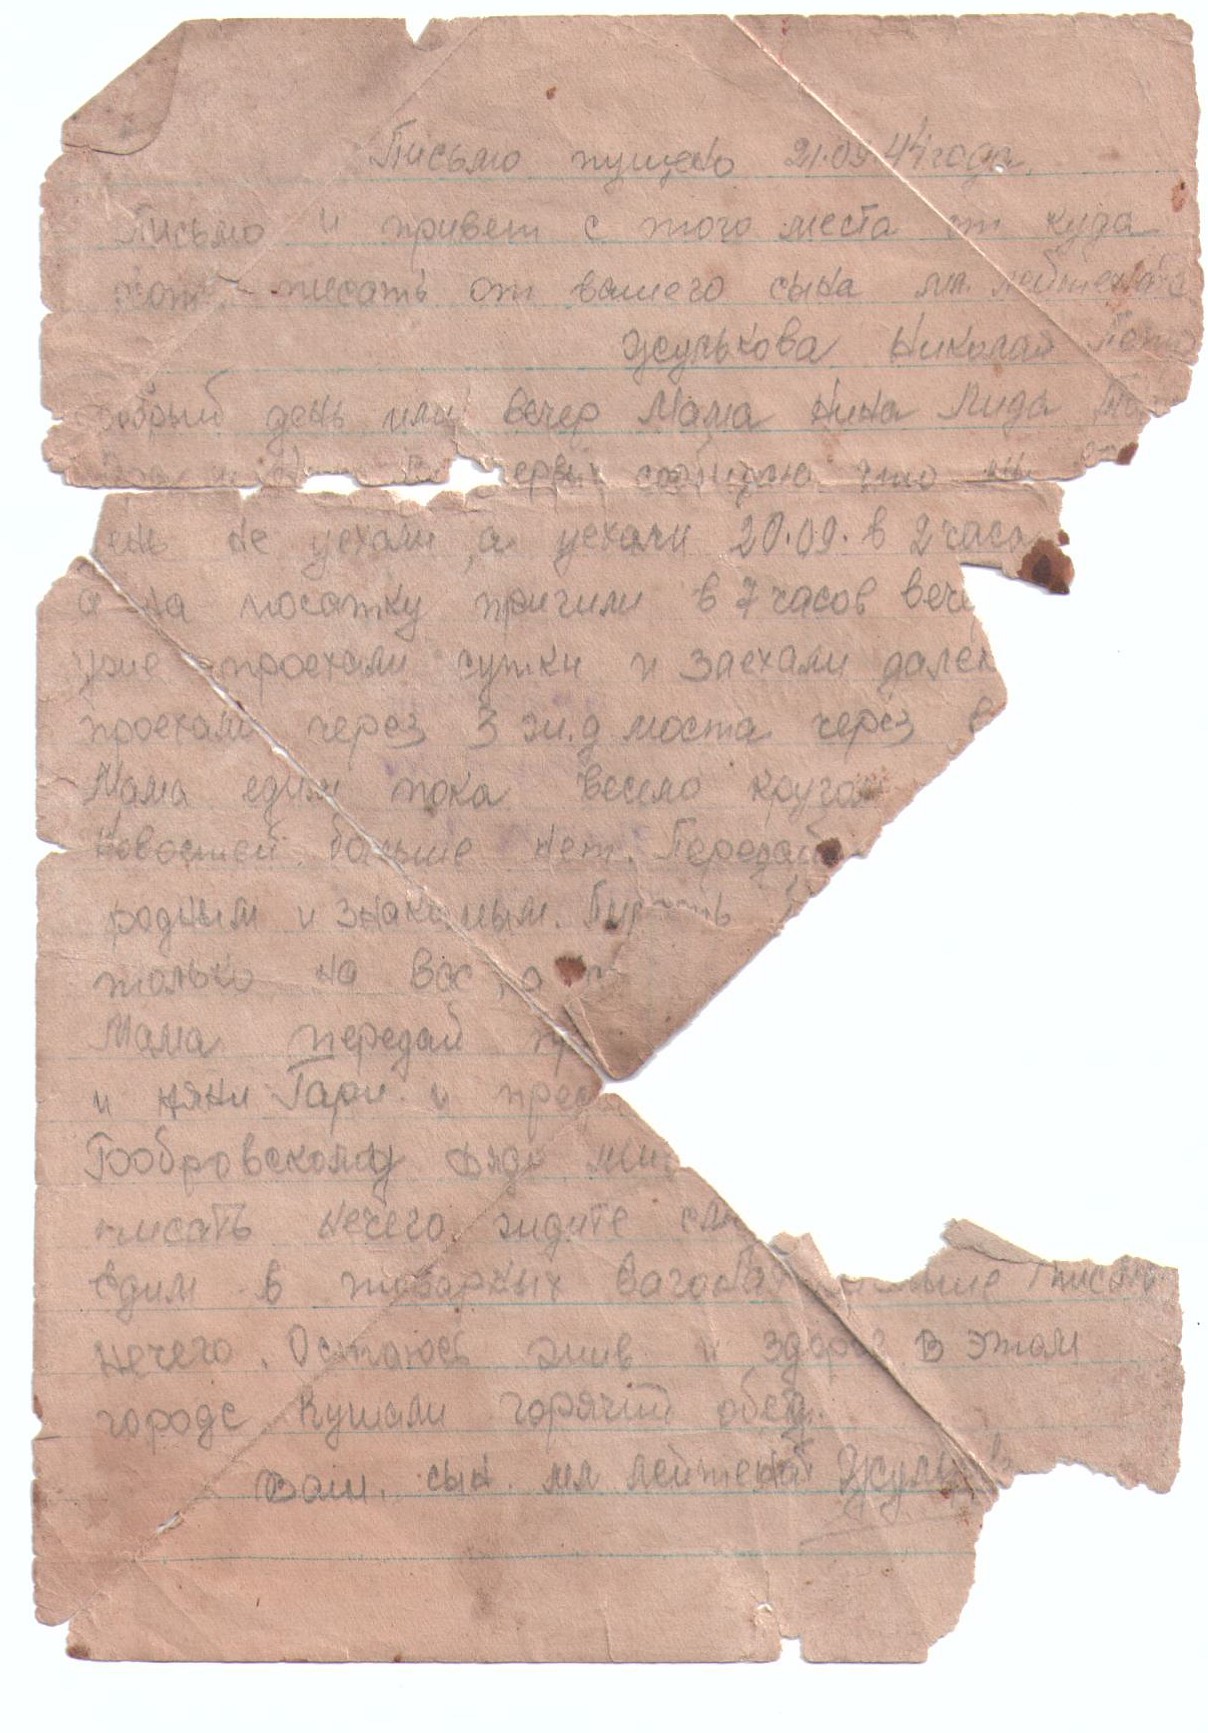 Письмо пущено 21.09.44 года.
Письмо и привет с того места от куда
писать от вашего сына мл. лейтената
Жулькова Николая
добрый день или вечер Мама Нина Лида
сообщаю что
не уехали, а уехали 20.09. в 2 часа
а на посатку пришли в 7 часов вече
уже проехали сутки и заехали далек
проехали через 3 ж.д моста через
Мама едим пока весело кругом
Новостей больше нет. Передай
родным и знакомым.
только на вас, а
Мама передай
и няни Гари и
Бобровскому дяде
писать нечего ждите
Едим в товарных вагонах больше писать
нечего. Остаюсь жив и здоров В этом
городе кушали горячий обед.
Ваш. сын. мл лейтенат Жульков